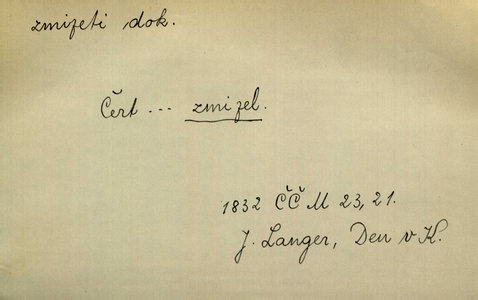 zmizeti dok.
Čert ... zmizel.
1832 ČČM 23,21.
J. Langer, Den v K.